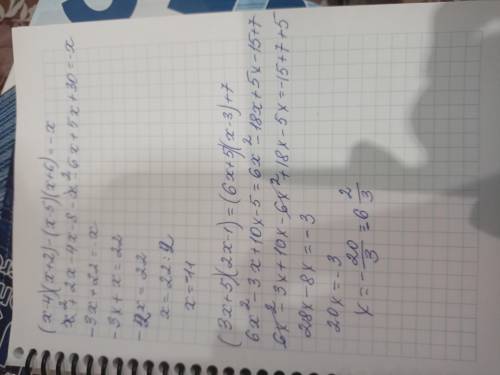 (x-4)(x+2)-(x-5)(x+6)=-x
x²+2x-4x-8-x²-6x+5x+30=-x
-3x+22=-x
-3x+x=22
-2x=22
x=22:2
x=11
(3x+5)(2x-1)=(6x+5)(x-3)+7
6x²-3x+10x-5=6x²-18x+5x-15+7
6x²-3x+10x-6x²+18x-5x=-15+7+5
28x-8x=-3
20x=-3
x=-20/3=6 2/3